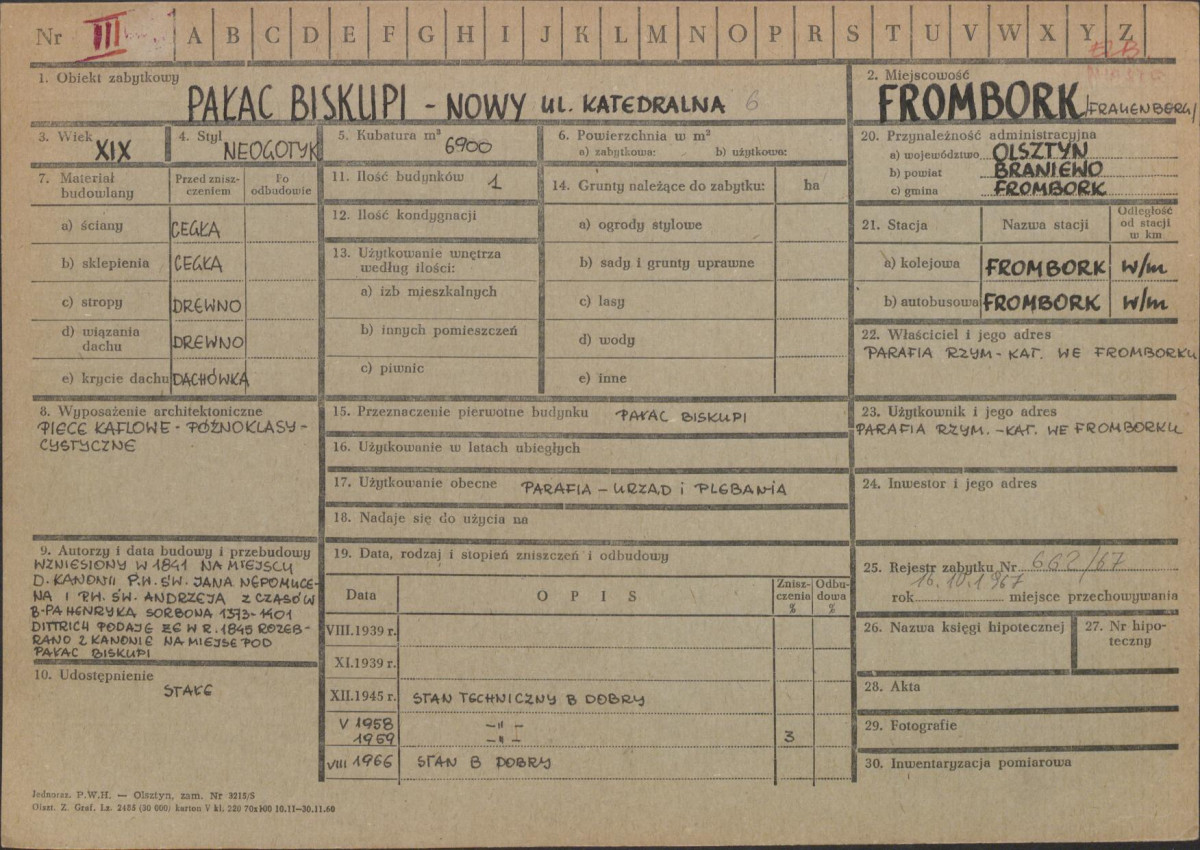 Nr III A B C D E F G H I J K L M N O P R S T U V W X Y Z
1. Obiekt zabytkowy
PAŁAC BISKUPI - NOWY UL. KATEDRALNA 6
2. Miejscowość
FROMBORK /FRAUENBERG/
3. Wiek
XIX
4. Styl
NEOGOTYK
5. Kubatura m³
6900
6. Powierzchnia w m²
a) zabytkowa: b) użytkowa:
7. Materiał budowlany
Przed zniszczeniem
Po odbudowie
a) ściany CEGŁA
b) sklepienia CEGŁA
c) stropy DREWNO
d) wiązania dachu DREWNO
e) krycie dachu DACHÓWKA
8. Wyposażenie architektoniczne
PIECE KAFLOWE - PÓŹNOKLASY-
CYSTYCZNE
9. Autorzy i data budowy i przebudowy
WZNIESIONY W 1841 NA MIEJSCU
D. KANONII P.W. ŚW. JANA NEPOMUCE-
NA I P.W. ŚW. ANDRZEJA Z CZASÓW
B-PA HENRYKA SORBONA 1373-1401
DITTRICH PODAJE ŻE W R. 1845 ROZEB-
RANO 2 KANONIE NA MIEJSE POD
PAŁAC BISKUPI
10. Udostępnienie
STAŁE
11. Ilość budynków 1
12. Ilość kondygnacji
13. Użytkowanie wnętrza
według ilości:
a) izb mieszkalnych
b) innych pomieszczeń
c) piwnic
14. Grunty należące do zabytku: ha
a) ogrody stylowe
b) sady i grunty uprawne
c) lasy
d) wody
e) inne
15. Przeznaczenie pierwotne budynku PAŁAC BISKUPI
16. Użytkowanie w latach ubiegłych
17. Użytkowanie obecne PARAFIA - URZĄD i PLEBANIA
18. Nadaje się do użycia na
19. Data, rodzaj i stopień zniszczeń i odbudowy
Data OPIS Zniszczenia % Odbudowa %
VIII.1939 r.
XI.1939 r.
XII.1945 r. STAN TECHNICZNY B DOBRY
V 1958 -"-
1959 -"- 3
VIII 1966 STAN B DOBRY
20. Przynależność administracyjna
a) województwo OLSZTYN
b) powiat BRANIEWO
c) gmina FROMBORK
21. Stacja Nazwa stacji Odległość od stacji w km
a) kolejowa FROMBORK w/m
b) autobusowa FROMBORK w/m
22. Właściciel i jego adres
PARAFIA RZYM-KAT. WE FROMBORKU
23. Użytkownik i jego adres
PARAFIA RZYM.-KAT. WE FROMBORKU
24. Inwestor i jego adres
25. Rejestr zabytku Nr 662/67
16.10.1967
rok miejsce przechowywania
26. Nazwa księgi hipotecznej
27. Nr hipoteczny
28. Akta
29. Fotografie
30. Inwentaryzacja pomiarowa
Jednoraz. P.W.H. — Olsztyn, zam. Nr 3215/S
Olszt. Z. Graf. Lz. 2455 (30 000) karton V kl. 220 70x100 10.11—30.11.60